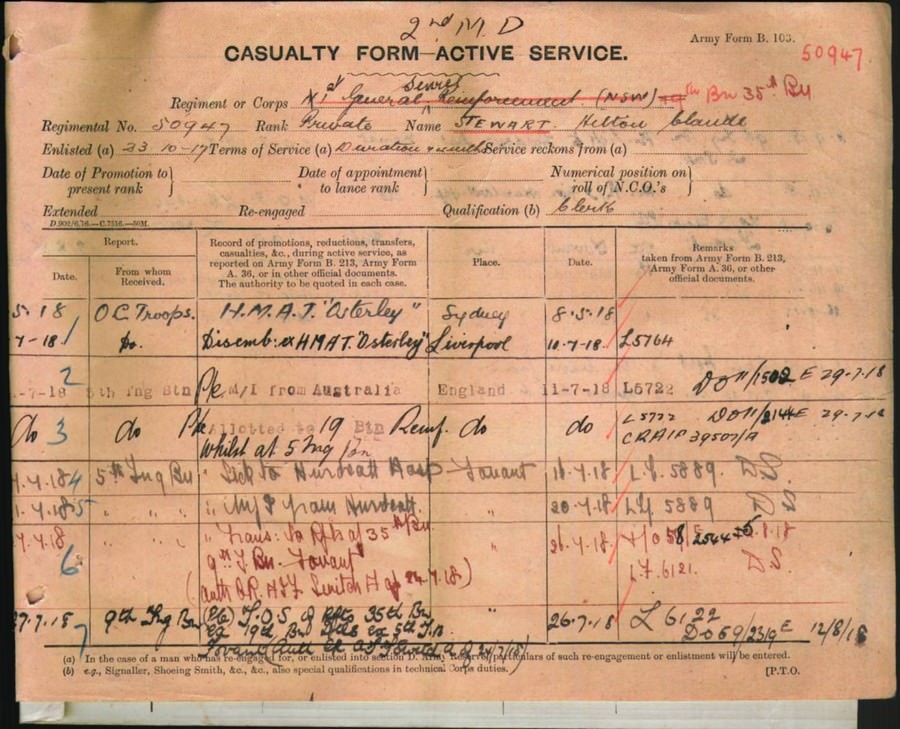 2nd M.D
CASUALTY FORM—ACTIVE SERVICE.
Army Form B. 103.
50947
Regiment or Corps General Service Reinforcement (NSW) 19th Bn 35th Bn
Regimental No. 50947 Rank Private Name STEWART. Hilton Claude
Enlisted (a) 23 10-17 Terms of Service (a) Duration Service reckons from (a)
Date of Promotion to present rank } Date of appointment to lance rank } Numerical position on roll of N.C.O.'s }
Extended Re-engaged Qualification (b) Clerk
D.902/6.16.—C.7516.—50M.
Report.
Date.
From whom Received.
Record of promotions, reductions, transfers,
casualties, &c., during active service, as
reported on Army Form B. 213, Army Form
A. 36, or in other official documents.
The authority to be quoted in each case.
Place.
Date.
Remarks
taken from Army Form B. 213,
Army Form A. 36, or other
official documents.
5.18 O.C. Troops. H.M.A.T. "Osterley" Sydney 8.5.18
7-18 1 Do. Disemb: ex HMAT. "Osterley" Liverpool 10-7-18. L5764
-7-18 2 5th Tng Btn Pte M/I from Australia England 11-7-18 L5722 DO11/1502 E 29-7-18
do 3 do Pte Allotted to 19 Btn Reinf. do do L5722 DO11/2144E 29-7-18
whilst at 5 Tng Bn CRAIF 39507/A
.7.18 4 5th Tng Bn " Sick to Hurdcott Hosp Fovant 18.7.18 L.F. 5889. DS
.7.18 5 " " " " M/I from Hurdcott. " 20.7.18 LF 5889 DS
.7.18 6 " " " " Trans: to Rfts of 35th Bn " 26.7.18 8.18
9th T. Bn. Fovant L.F. 6121. DS.
(auth AIF 24.7.18)
27.7.18 7 9th Tng Bn (Pte) T.O.S. of Rfts 35th Bn " 26.7.18 L 6122
ex 19th Bn ex 5th T.B DO69/2319E 12/8/18
Fovant Auth 24/7/18)
(a) In the case of a man who has re-engaged for, or enlisted into section D. Army Reserve, particulars of such re-engagement or enlistment will be entered.
(b) e.g., Signaller, Shoeing Smith, &c., &c., also special qualifications in technical Corps duties. [P.T.O.